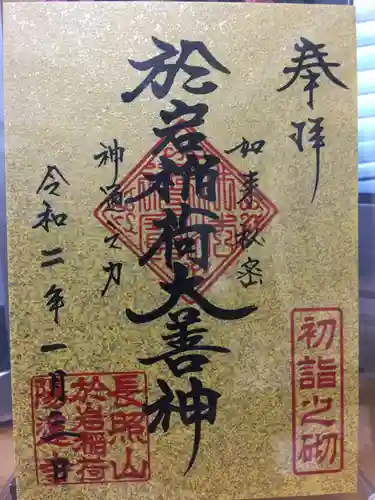 奉拝
如来秘密
於岩稲荷大善神
神通之力
令和二年一月三日
初詣之砌
長照山
於岩稲荷
陽運寺